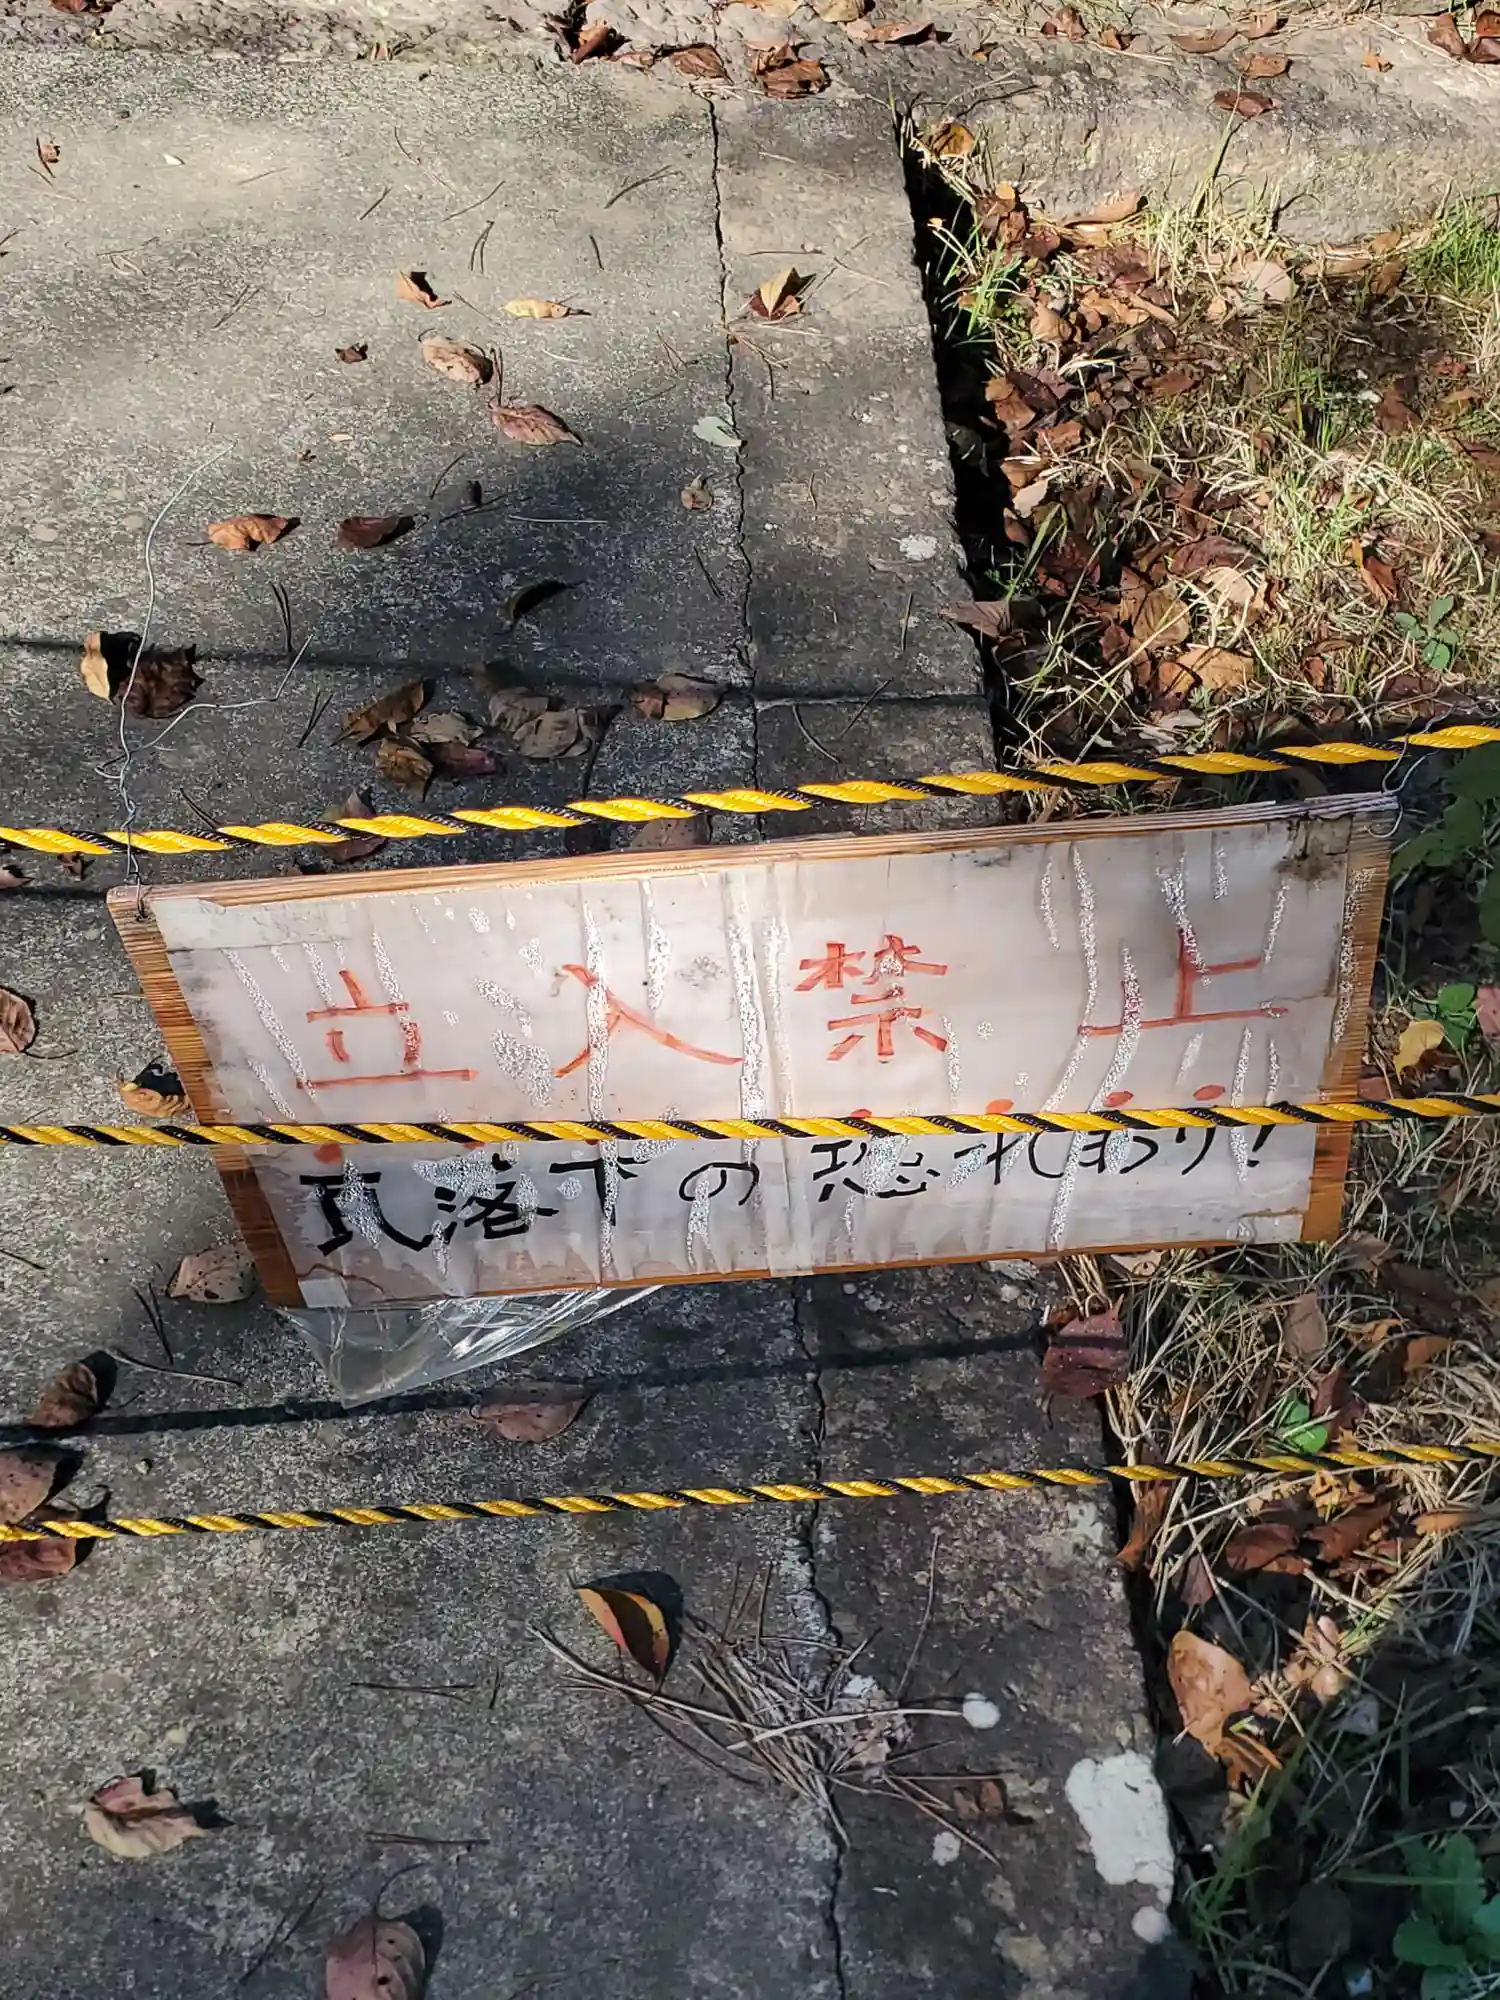 立入禁止
瓦落下の恐れあり!